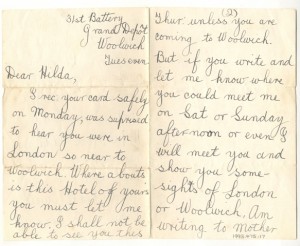 31st Battery
Grand Depot
Woolwich
Tues even.
Dear Hilda,
I rec your card safely
on Monday, was suprised
to hear you were in
London so near to
Woolwich. Where abouts
is this Hotel of yours
you must let me
know. I shall not be
able to see you this
(2)
Thur: unless you are
coming to Woolwich.
But if you write and
let me know where
you could meet me
on Sat or Sunday
afternoon or even I
will meet you and
show you some-
sights of London
or Woolwich. Am
writing to Mother